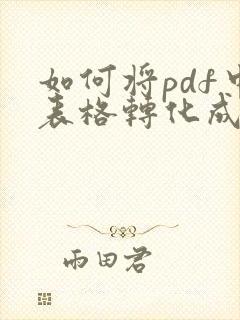 如何將pdf中
表格轉化成
雨田君